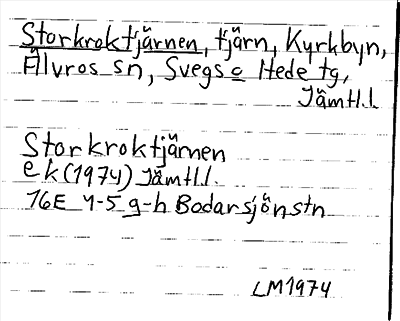 Storkroktjärnen, tjärn, Kyrkbyn,
Älvros sn, Svegs o Hede tg,
Jämtl.l.
Storkroktjärnen
ek (1974) Jämtl.l.
16E 4-5 g-h Bodarsjön stn
LM1974